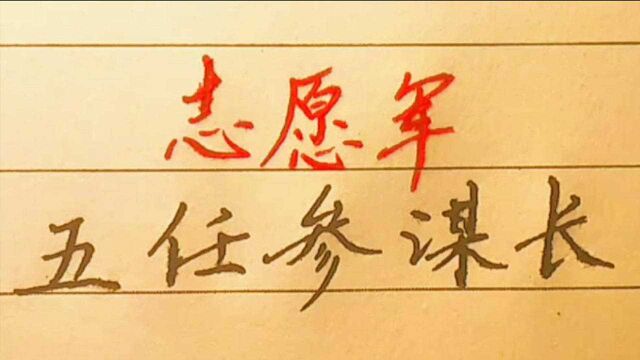 志愿军
五任参谋长